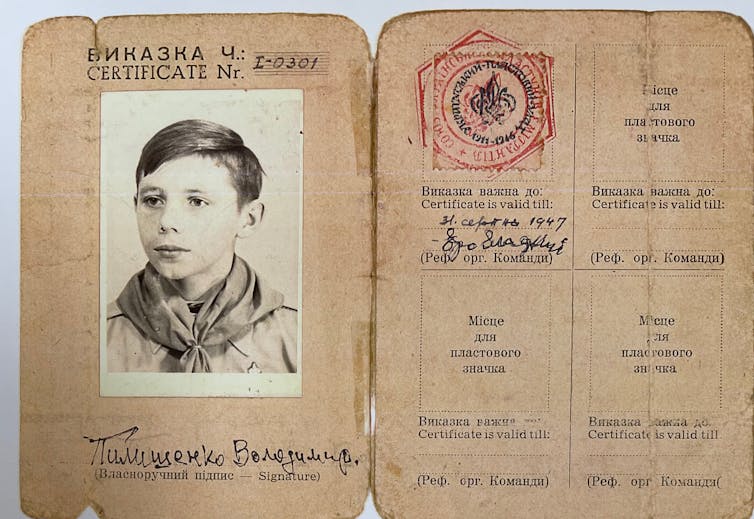 ВИКАЗКА Ч.:
CERTIFICATE Nr. I-0301
Пилищенко Володимир.
(Власноручний підпис — Signature)
1911-1946
Виказка важна до:
Certificate is valid till:
31. серпня 1947
(Реф. орг. Команди)
Місце
для
пластового
значка
Виказка важна до:
Certificate is valid till:
(Реф. орг. Команди)
Місце
для
пластового
значка
Виказка важна до:
Certificate is valid till:
(Реф. орг. Команди)
Місце
для
пластового
значка
Виказка важна до:
Certificate is valid till:
(Реф. орг. Команди)